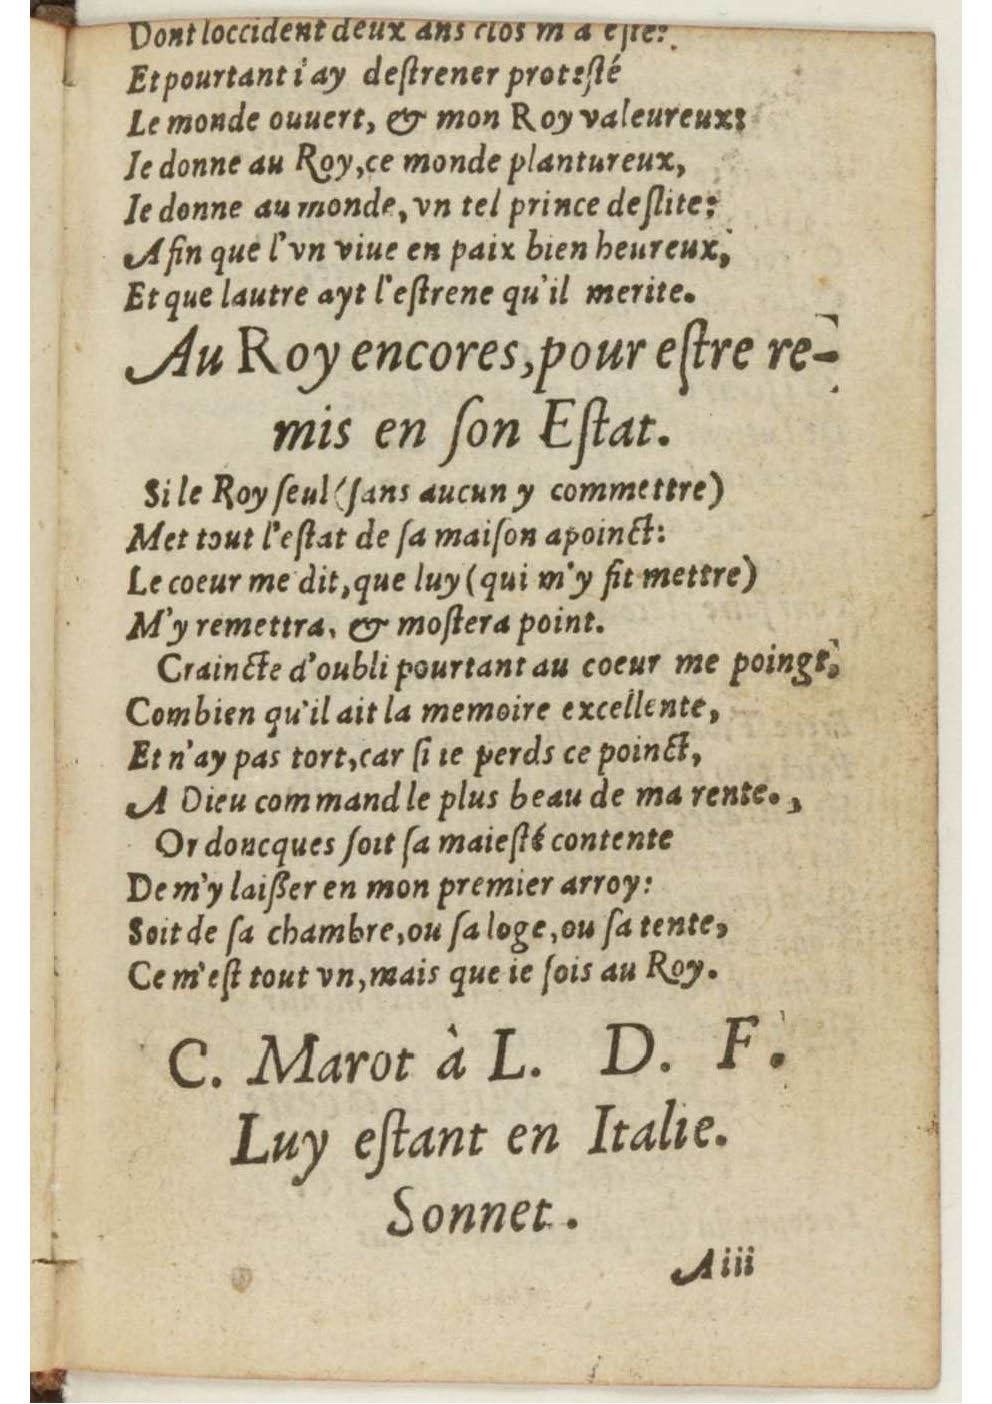 Dont loccident deux ans clos m'a esté:
Et pourtant i'ay destrener protesté
Le monde ouuert, & mon Roy valeureux:
Ie donne au Roy, ce monde plantureux,
Ie donne au monde, vn tel prince deslite:
Afin que l'vn viue en paix bien heureux,
Et que lautre ayt l'estrene qu'il merite.
Au Roy encores, pour estre re-
mis en son Estat.
Si le Roy seul (sans aucun y commettre)
Met tout l'estat de sa maison apoinct:
Le coeur me dit, que luy (qui m'y fit mettre)
M'y remettra, & mostera point.
Craincte d'oubli pourtant au coeur me poingt,
Combien qu'il ait la memoire excellente,
Et n'ay pas tort, car si ie perds ce poinct,
A Dieu command le plus beau de ma rente.,
Or doncques soit sa maiesté contente
De m'y laißer en mon premier arroy:
Soit de sa chambre, ou sa loge, ou sa tente,
Ce m'est tout vn, mais que ie sois au Roy.
C. Marot à L. D. F.
Luy estant en Italie.
Sonnet.
Aiii